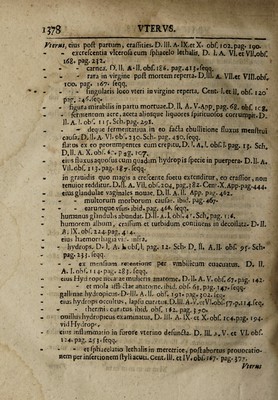 1378 VTERVS.
Vterus, eius post partum, crassities. D. III. A. IX. et X. obs. 102. pag. 190.
- - excrescentia vlcerosa cum sphacelo lethalis. D. I. A. VI. et VII. obs.
168. pag. 252.
- - carnea. D. II. A. II. obs. 186. pag. 413. seqq.
- - rara in virgine post mortem reperta. D. III. A. VII. et VIII. obs.
100. pag. 167. seqq.
- - singularis loco vteri in virgine reperta. Cent. I. et II. obs. 120
pag. 246. seq.
- - figura mirabilis in partu mortuae. D. II. A. V. App. pag. 68. obs.
- - fermentum acre, aceta aliosque liquores spirituosos corrumpit. D.
II. A. I. obs. 115. Sch. pag. 258.
- - deque fermentatius in eo facta ebullitione fluxus menstrui
causa. D. II. A. VI. obs. 230. Sch. pag. 480. seqq.
- flatus ex eo prorumpentes cum crepitu. D. I. A. I. obs. pag. 15. Sch.
D. II. A. X. obs. pag. 147.
- eius fluxus aquosus cum quadam hydropis specie in puerpera. D. II. A.
VII. obs. 213. pag. 387. seqq.
- in grauidis quo magis a crescente foetu extenditur, eo crassior, non
tenuior redditur. D. II. A. VII. obs. 204. pag. 382. Cent. X. App. pag. 444.
- eius glandulae vaginales nouae. D. II. A. II. App. pag. 462.
- - multorum morborum causae. ibid. pag. 467.
- - earumque vsus. ibid. pag. 468. seqq.
- humanus glandulis abundat. D. II. A. I. obs. 41. Sch. pag. 116.
- humorem album, crassum et turbidum continens in decollata. D. II.
A. IX. obs. 224. pag. 414.
- eius haemorrhagia
- hydrops. D. I. A. obs. pag. 12. Sch. D. II. A. II. obs. 95. Sch.
pag. 233. seqq.
- - ex mensium retentione per vmbilicum euacuatus. D. II.
A. I. obs. 114. pag. 285. seqq.
- eius Hydropicae ac mulieris anatome. D. II. A. V. obs. 67. pag. 142.
- et mola afflictae anatome. ibid. obs. 69. pag. 147. seqq.
- gallinae hydropicus. D. III. A. II. obs. 191. pag. 302. seq.
- eius hydrops occultus, lapsu curatus. D. III. A. V. et VI. obs. 57. pag. 114. seq.
- - thermis curatus. ibid. obs. 162. pag. 370.
- ouillus hydropicus examinatus, D. III. A. IX. et X. obs. 104. pag. 194.
vid Hydrops.
- eius inflammatio in furore vterino defuncta. D. III. A. V. et VI. obs.
124. pag. 251. seqq.
- - et sphacelatio lethalis in meretrice, post abortus prouocationem
per insertionem styli acuti. Cent. III. et IV. obs. 167. pag. 377.
Vterus